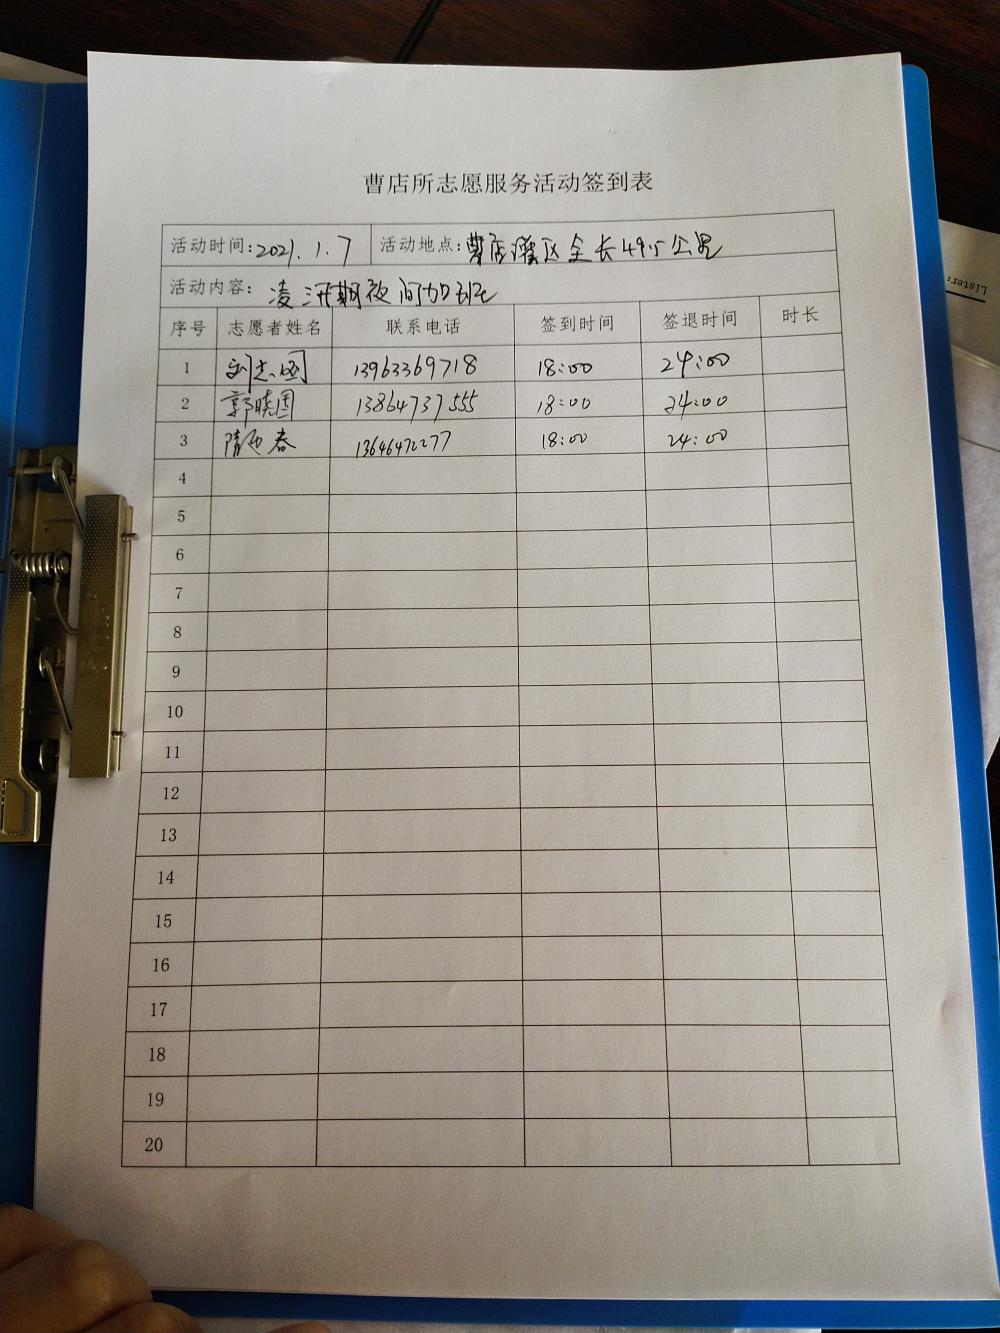 曹店所志愿服务活动签到表
活动时间:2021.1.7 活动地点:曹店灌区全长49.5公里
活动内容:凌汛期夜间加班
序号 志愿者姓名 联系电话 签到时间 签退时间 时长
1 刘志国 13963369718 18:00 24:00
2 郭晓国 13864737555 18:00 24:00
3 隋 春 13646472277 18:00 24:00
4
5
6
7
8
9
10
11
12
13
14
15
16
17
18
19
20
Lister: